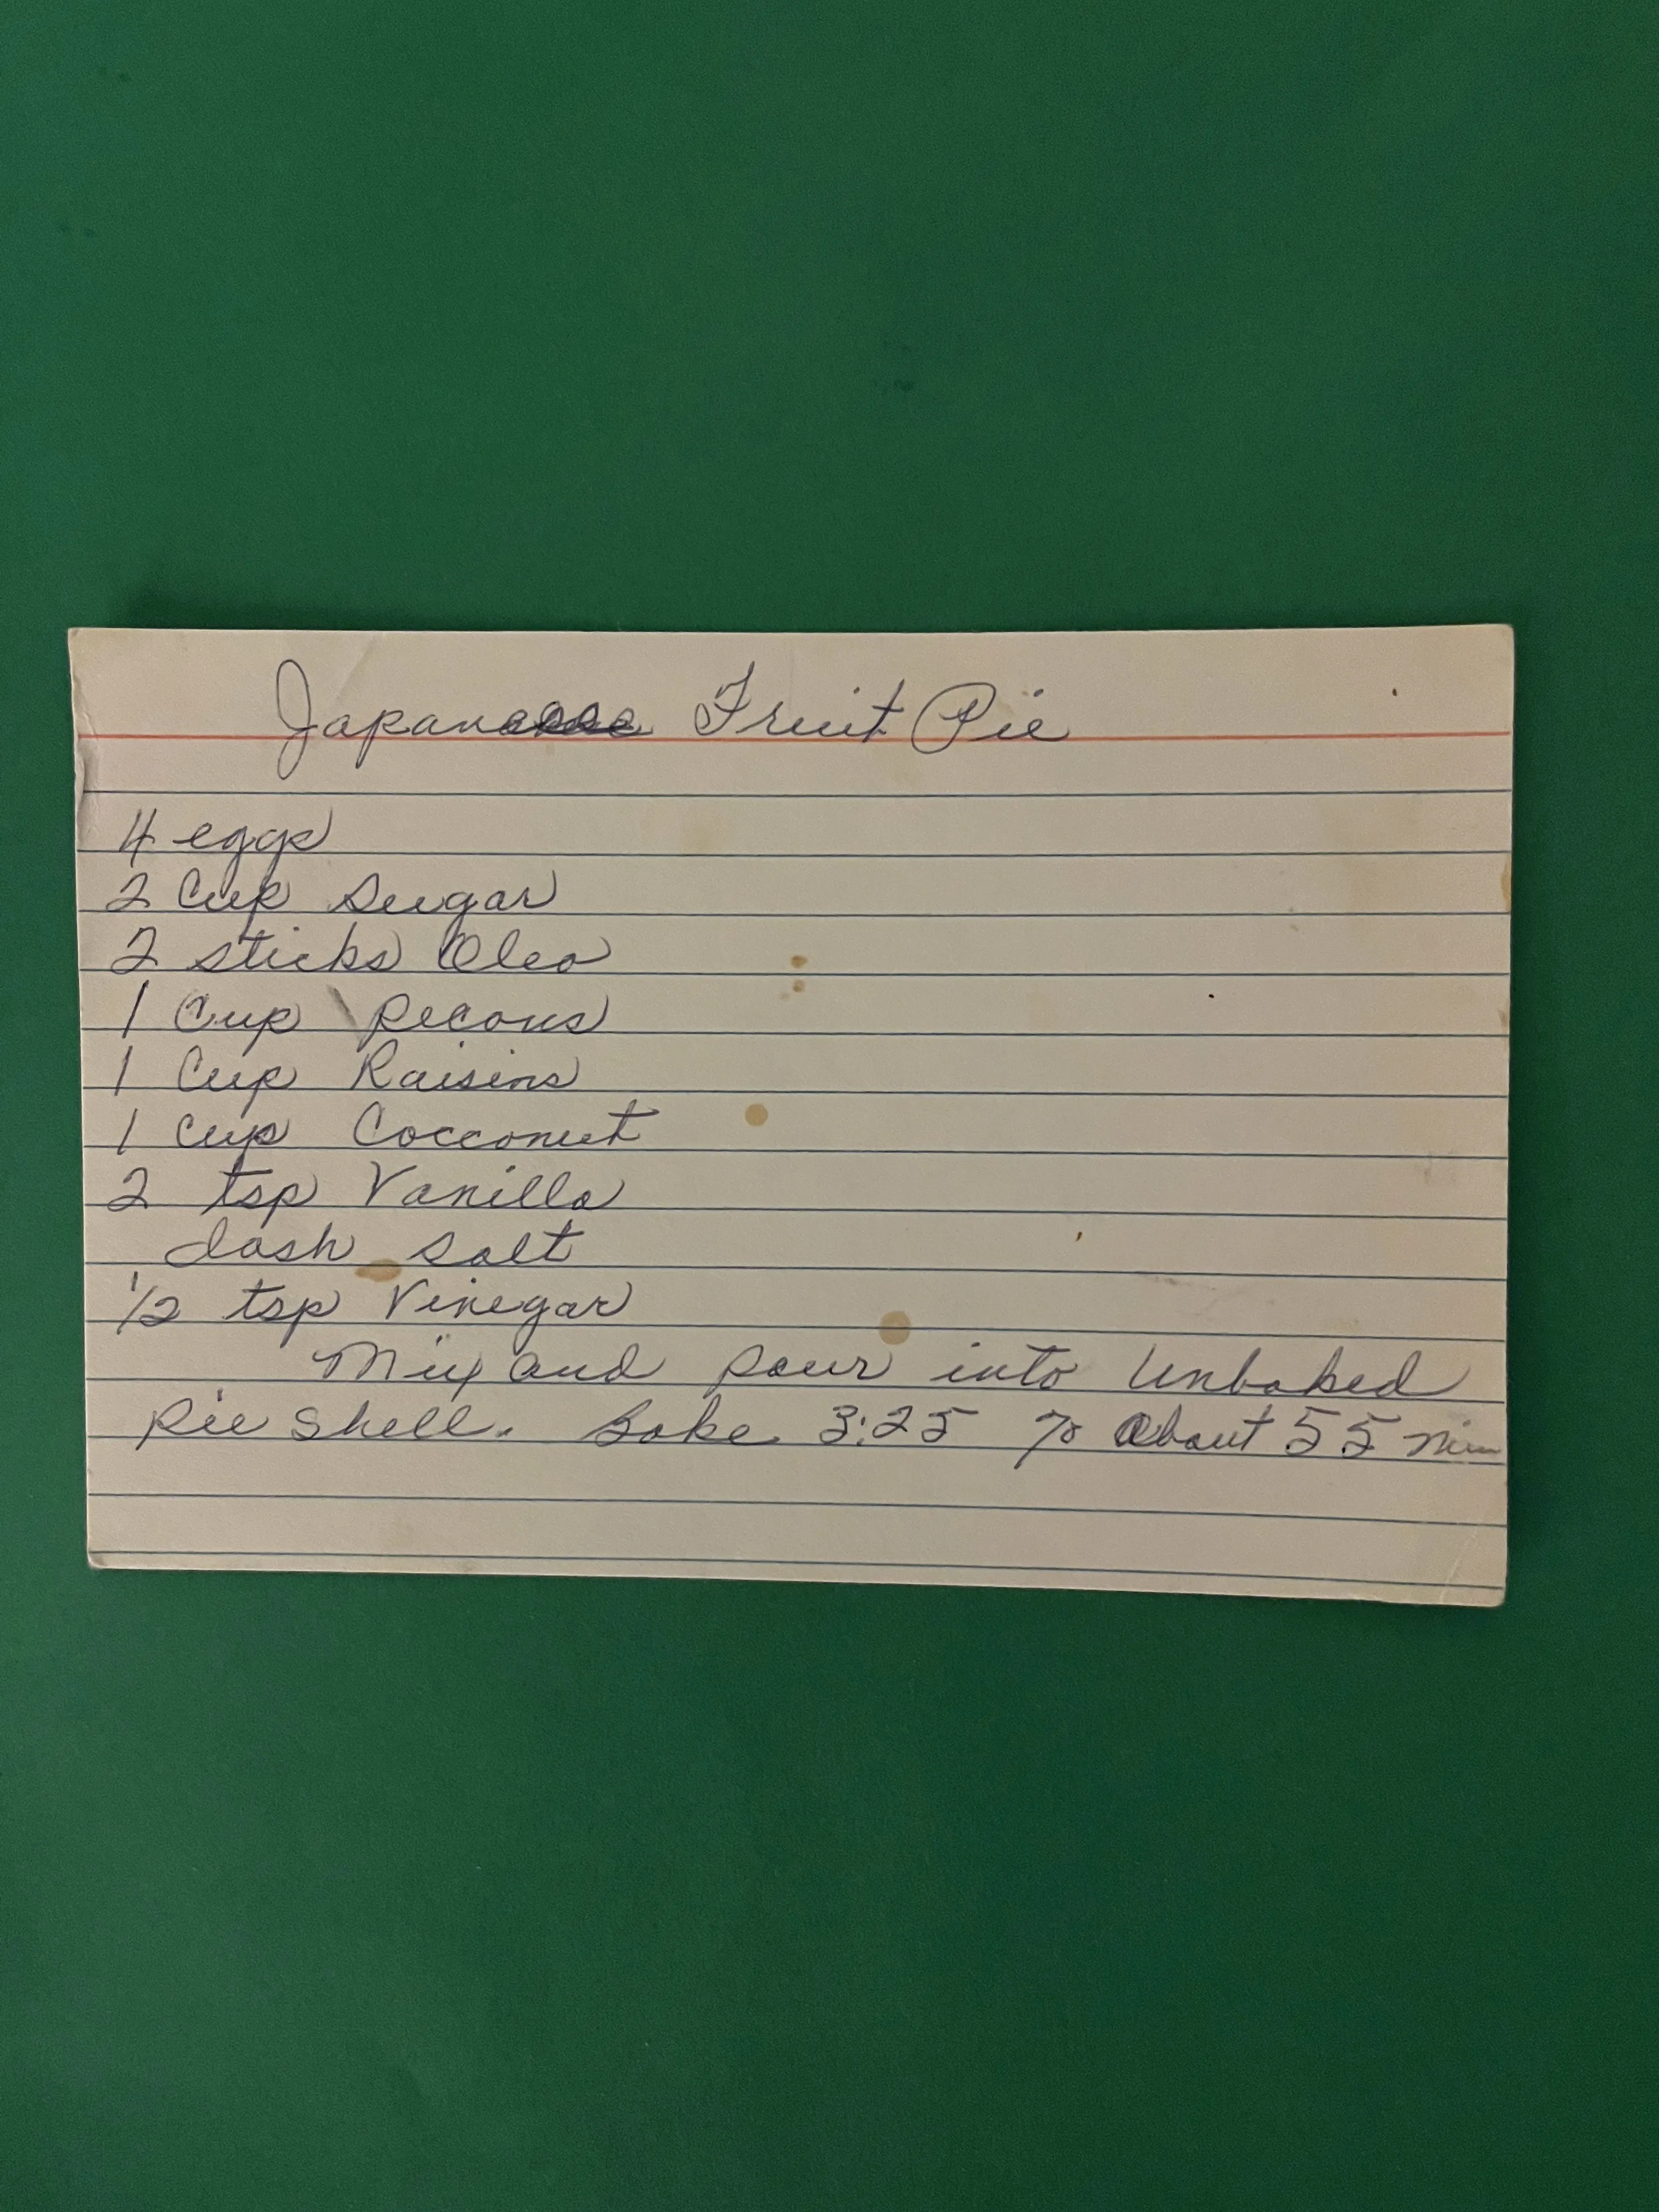 Japanese Fruit Pie
4 eggs
2 Cup Sugar
2 sticks Oleo
1 Cup Pecans
1 Cup Raisins
1 Cup Cocconut
2 tsp Vanilla
dash salt
1/2 tsp Vinegar
Mix and pour into Unbaked
Pie Shell. Bake 3:25 70 About 55 min